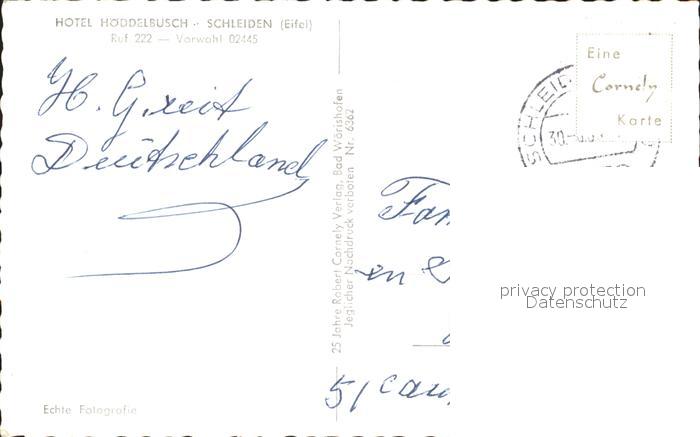 HOTEL HÖDDELBUSCH · SCHLEIDEN (Eifel)
Ruf 222 — Vorwahl 02445
Deutschland
25 Jahre Robert Cornely Verlag, Bad Wörishofen
Jeglicher Nachdruck verboten Nr. 6362
Eine
Cornely
Karte
SCHLEID
30.
Fam
en
51
privacy protection
Datenschutz
Echte Fotografie